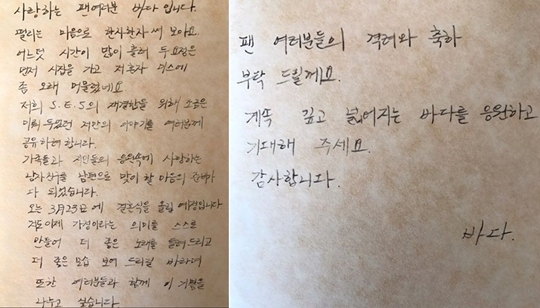 사랑하는 팬여러분 바다 입니다.
떨리는 마음으로 한자한자 써 보아요.
어느덧 시간이 많이 흘러 두요정은
먼저 시집을 가고 저혼자
좀 오래 머물렀네요
저희 S.E.S의 재결합을 위해 조금은
미뤄 두었던 저만의 이야기를 여러분께
공유하려 합니다.
가족들과 지인들의 응원속에 사랑하는
남자친구를 남편으로 맞이 할 마음의 준비가
다 되었습니다.
오는 3月23日에 결혼식을 올릴 예정입니다
저도 이제 가정이라는 의미를 스스로
만들어 더 좋은 노래를 들려 드리고
더 좋은 모습 보여 드리길 바라며
또한 여러분들과 함께 이 기쁨을
나누고 싶습니다
팬 여러분들의 격려와 축하
부탁 드릴께요.
계속 깊고 넓어지는 바다를 응원하고
기대해 주세요.
감사합니다.
바다.